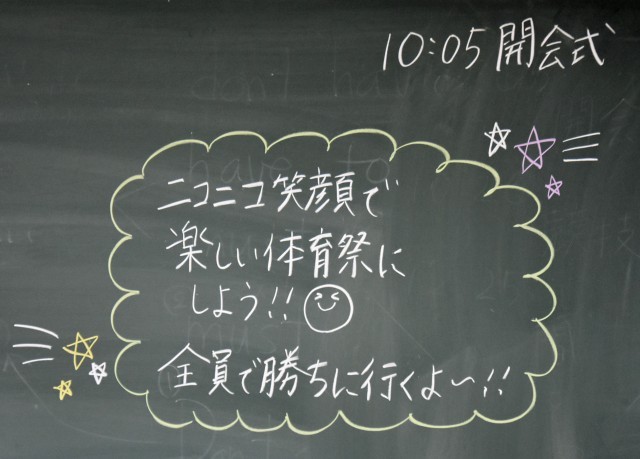 10:05 開会式
don't have
have to
ニコニコ笑顔で
楽しい体育祭に
しよう!!
must
全員で勝ちに行くよ～!!